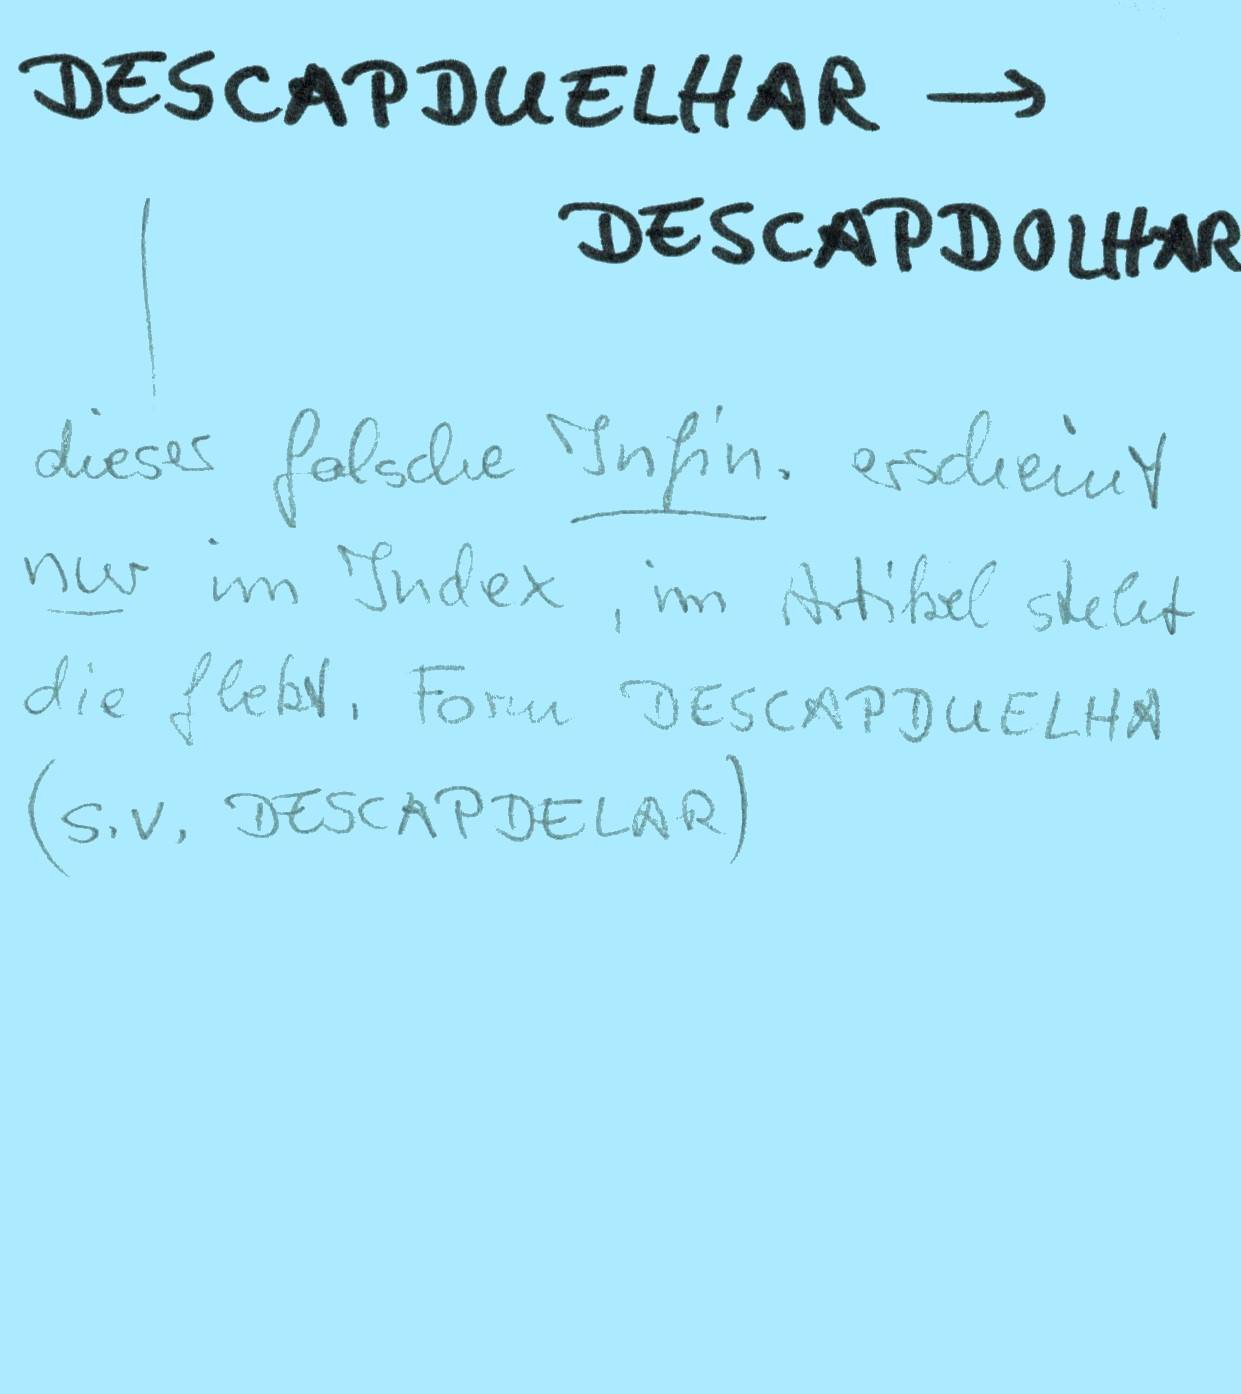 DESCAPDUELHAR →
DESCAPDOLHAR
dieser falsche Infin. erscheint
nur im Index, im Artikel steht
die flekt. Form DESCAPDUELHA
(s.v. DESCAPDELAR)